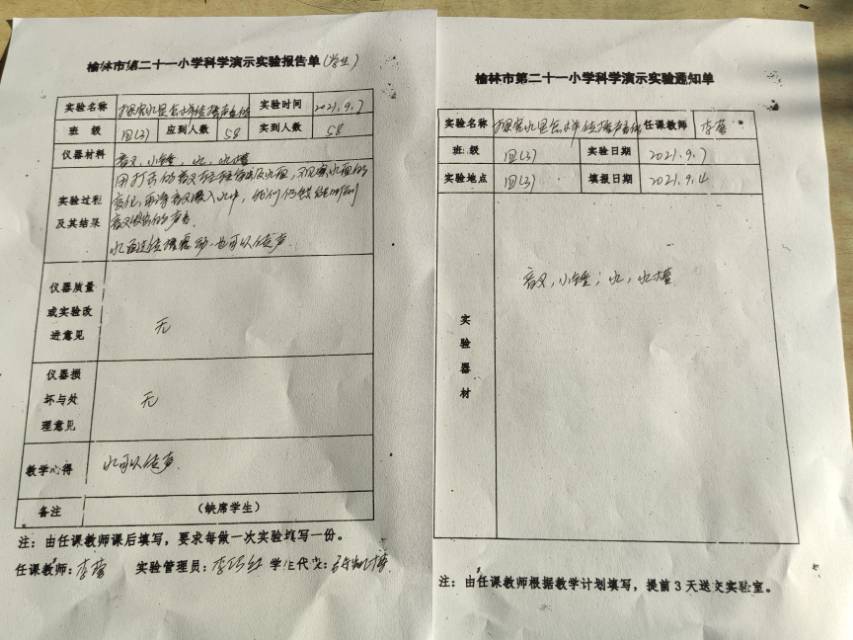 榆林市第二十一小学科学演示实验报告单(学生)
实验名称 探究水是怎样传播声音的 实验时间 2021.9.7
班 级 四(3) 应到人数 58 实到人数 58
仪器材料 音叉,小锤,水,水槽
实验过程及其结果
用打击的音叉轻轻触及水面,观察水面的
变化,再将音叉浸入水中,我们仍然能听到
音叉发出的声音
水通过振动也可以传声.
仪器质量
或实验改
进意见
无
仪器损
坏与处
理意见
无
教学心得 水可以传声.
备注 (缺席学生)
注:由任课教师课后填写,要求每做一次实验填写一份。
任课教师:李蕾 实验管理员:李巧红 学生代表:
榆林市第二十一小学科学演示实验通知单
实验名称 探究水是怎样传播声音的 任课教师 李蕾
班 级 四(3) 实验日期 2021.9.7
实验地点 四(3) 填报日期 2021.9.4
实验器材
音叉,小锤,水,水槽
注:由任课教师根据教学计划填写,提前3天送交实验室。